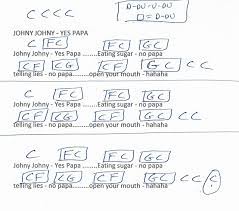 C C C C
D-DU-U-DU
□ = D-DU
JOHNY JOHNY - YES PAPA
C FC FC GC
Johny Johny - Yes Papa ........Eating sugar - no papa
CF CG CF GC C C
telling lies - no papa..........open your mouth - hahaha
C FC FC GC
Johny Johny - Yes Papa ........Eating sugar - no papa
CF CG CF GC C C
telling lies - no papa..........open your mouth - hahaha
C FC FC GC
Johny Johny - Yes Papa ........Eating sugar - no papa
CF CG CF GC C C C
telling lies - no papa..........open your mouth - hahaha